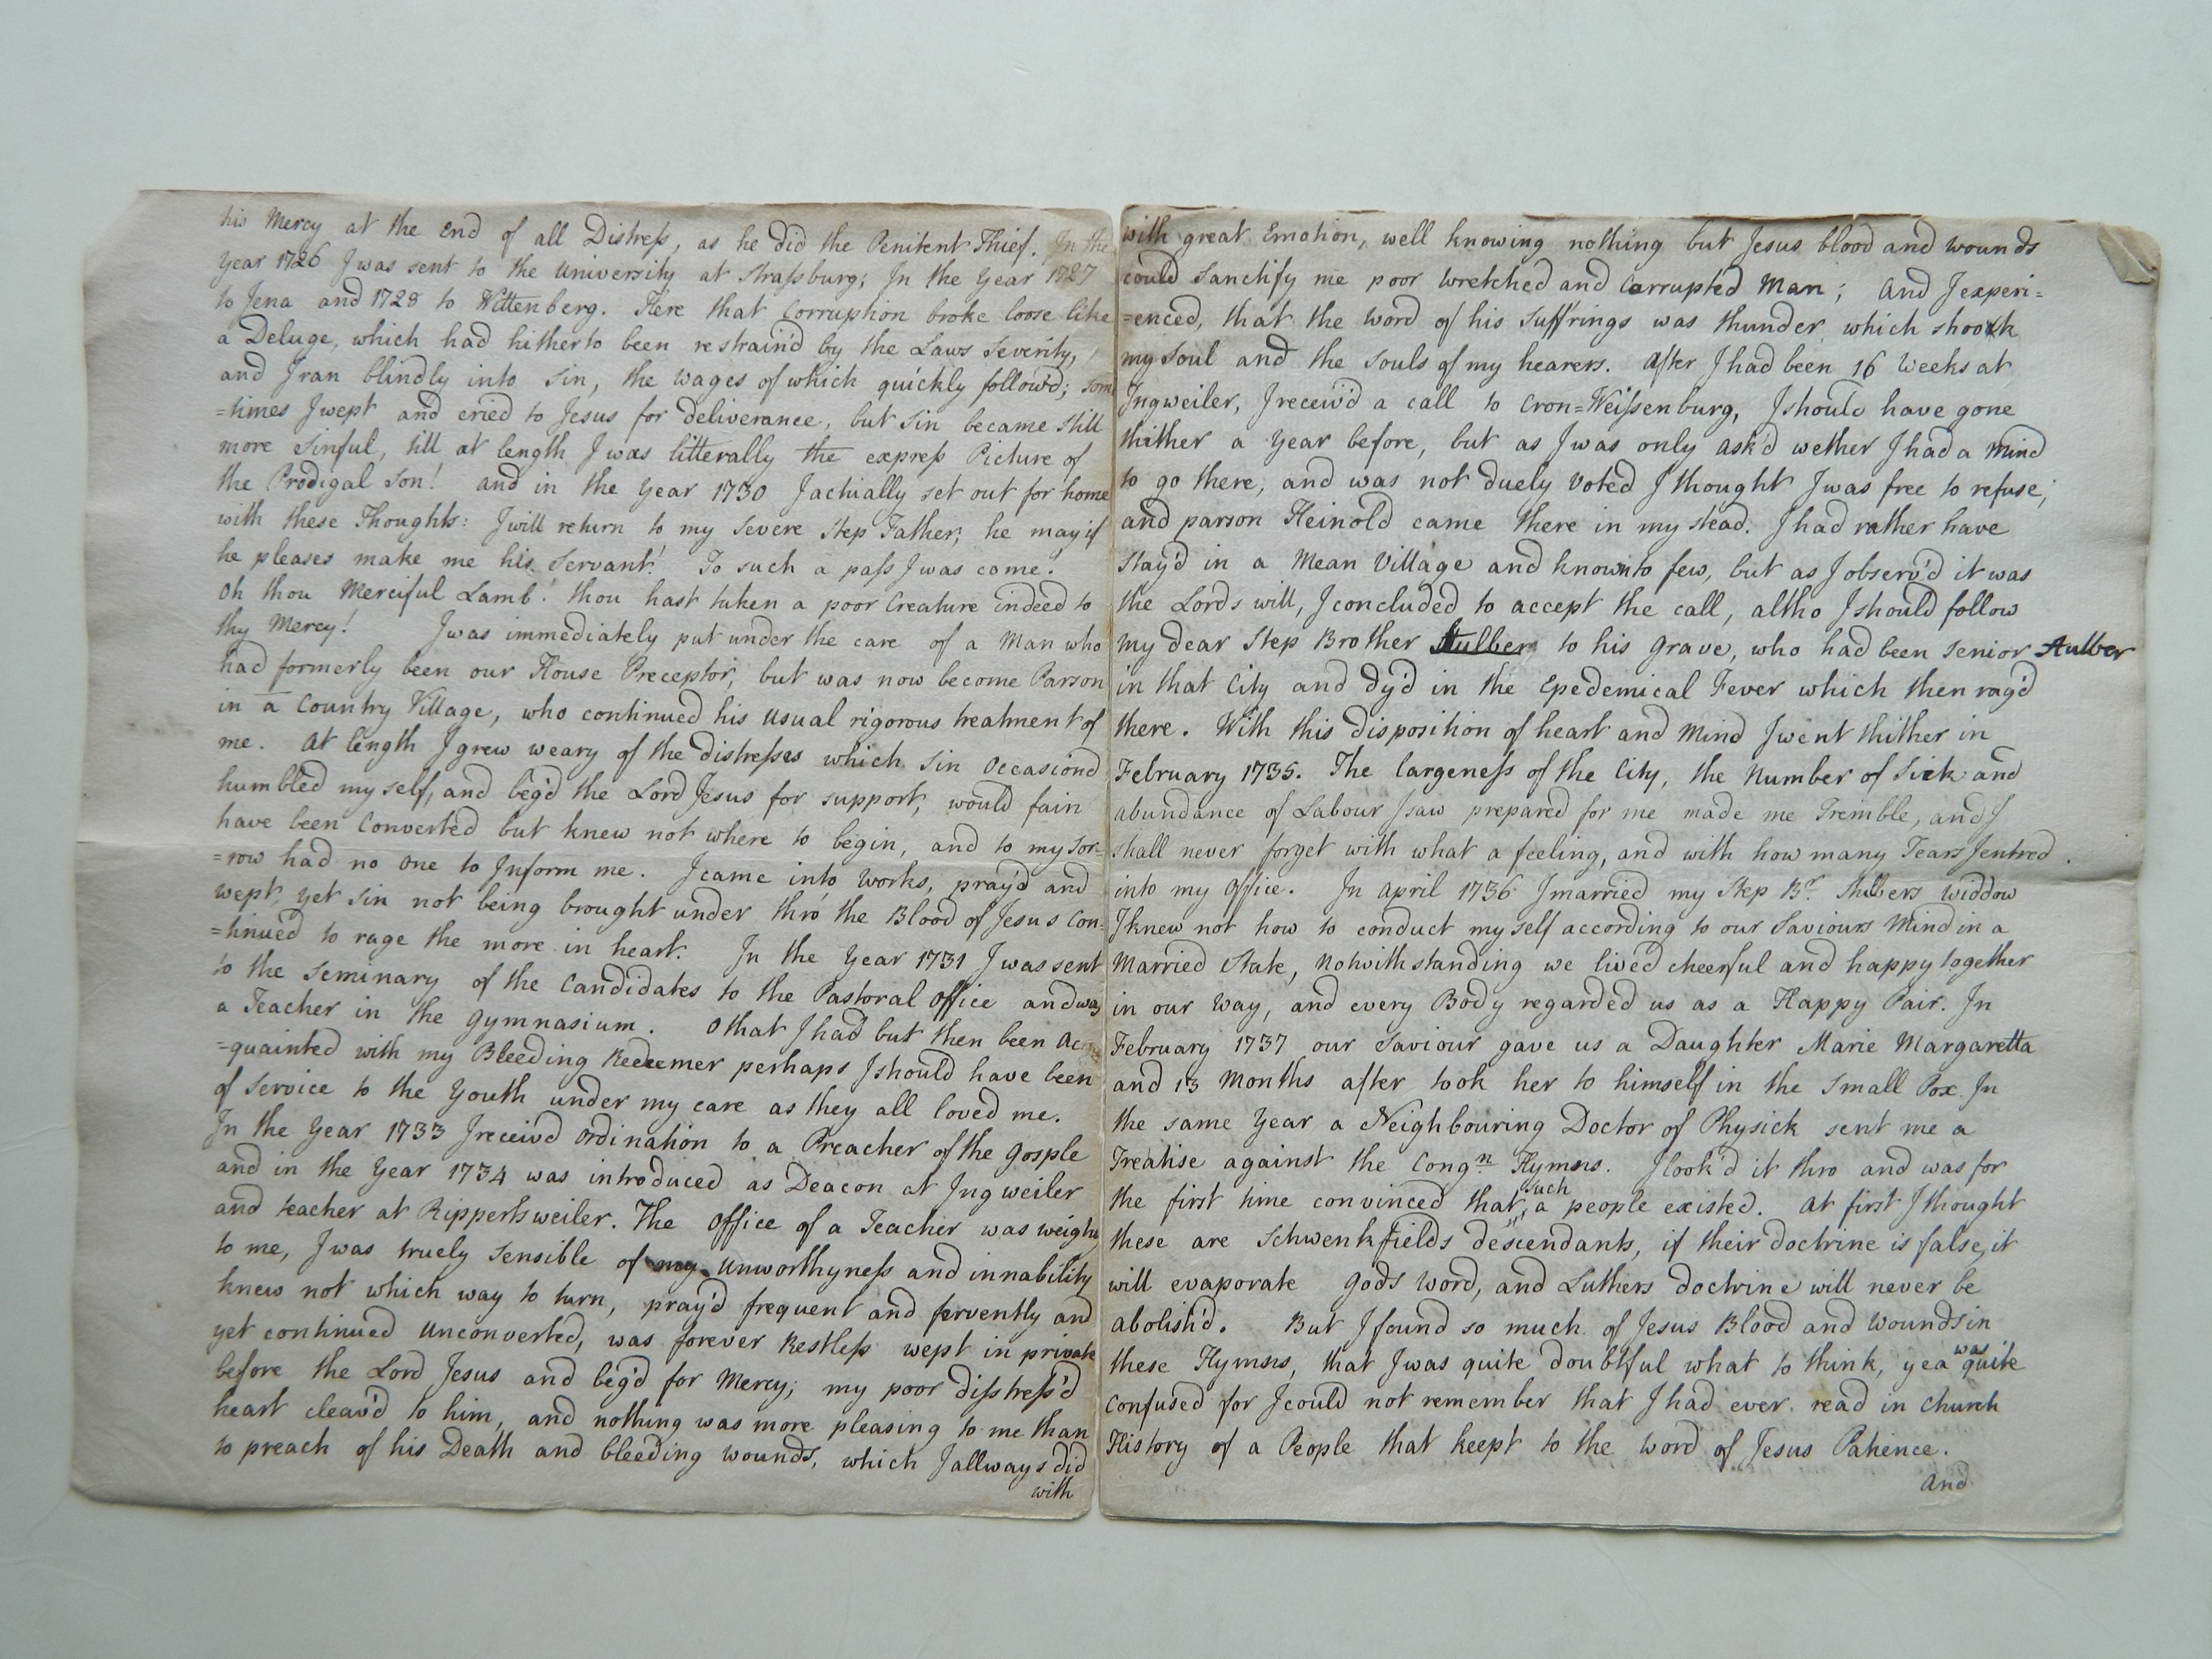 his Mercy at the End of all Distress, as he did the Penitent Thief. In the
Year 1726 I was sent to the University at Strassburg; In the Year 1727
to Jena and 1728 to Wittenberg. Here that Corruption broke loose like
a Deluge, which had hitherto been restrain'd by the Laws Severity,
and I ran blindly into Sin, the Wages of which quickly follow'd; som
=times I wept and cried to Jesus for deliverance, but Sin became still
more Sinful, till at length I was litterally the express Picture of
the Prodigal Son! and in the Year 1730 I actually set out for home
with these Thoughts: I will return to my Severe Step Father, he may if
he pleases make me his Servant! To such a pass I was come!
Oh thou Merciful Lamb! thou hast taken a poor Creature indeed to
thy Mercy! I was immediately put under the care of a Man who
had formerly been our House Preceptor, but was now become Parson
in a Country Village, who continued his usual rigorous treatment of
me. At length I grew weary of the distresses which Sin Occasiond
humbled my self, and beg'd the Lord Jesus for support, would fain
have been Converted but knew not where to begin, and to my Sor=
=row had no one to Inform me. I came into Works, pray'd and
wept, yet Sin not being brought under thro' the Blood of Jesus Con=
=tinued to rage the more in heart. In the Year 1731 I was sent
to the Seminary of the Candidates to the Pastoral Office and was
a Teacher in the Gymnasium. O that I had but then been Ac
=quainted with my Bleeding Redeemer perhaps I should have been
of Service to the Youth under my care as they all loved me.
In the Year 1733 I receiv'd Ordination to a Preacher of the Gosple
and in the Year 1734 was introduced as Deacon at Ingweiler
and teacher at Rippertsweiler. The Office of a Teacher was weighty
to me, I was truely Sensible of my Unworthyness and innability
knew not which way to turn, pray'd frequent and fervently and
yet continued Unconverted, was forever Restless wept in private
before the Lord Jesus and beg'd for Mercy; my poor disstress'd
heart cleav'd to him, and nothing was more pleasing to me than
to preach of his Death and bleeding wounds, which I allways did
with
with great Emotion, well knowing nothing but Jesus blood and wounds
could Sanctify me poor wretched and Corrupted Man; And I experi=
=enced, that the Word of his Suff'rings was thunder which shook
my Soul and the Souls of my hearers. After I had been 16 Weeks at
Ingweiler, I receiv'd a call to Cron=Weissenburg, I should have gone
thither a Year before, but as I was only ask'd wether I had a Mind
to go there, and was not duely Voted I thought I was free to refuse;
and parson Heinold came there in my stead. I had rather have
Stay'd in a Mean Village and known to few, but as I observ'd it was
the Lords will, I concluded to accept the call, altho I should follow
my dear Step Brother Stulber to his Grave, who had been Senior Stulber
in that City and Dy'd in the Epedemical Fever which then rag'd
there. With this disposition of heart and Mind I went thither in
February 1735. The largeness of the City, the Number of Sick and
abundance of Labour I saw prepared for me made me Tremble, and I
shall never forget with what a feeling, and with how many Tears I entred
into my Office. In April 1736 I married my Step Br. Stulbers Widdow
I knew not how to conduct my self according to our Saviours Mind in a
Married State, Notwithstanding we lived cheerful and happy together
in our Way, and every Body regarded us as a Happy Pair. In
February 1737 our Saviour gave us a Daughter Marie Margaretta
and 13 Months after took her to himself in the Small Pox. In
the same Year a Neighbouring Doctor of Physick sent me a
Treatise against the Congn. Hymns. I look'd it thro and was for
the first time convinced that such a people existed. At first I thought
these are Schwenkfields descendants, if their doctrine is false, it
will evaporate Gods Word, and Luthers doctrine will never be
abolish'd. But I found so much of Jesus Blood and Wounds in
these Hymns, that I was quite doubtful what to think, yea was quite
Confused for I could not remember that I had ever read in Church
History of a People that keept to the Word of Jesus Patience.
And